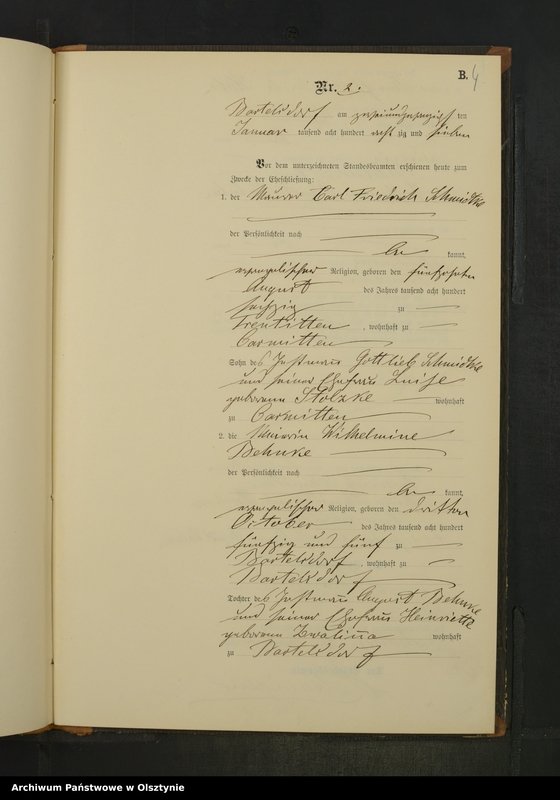 B. 4
Nr. 2.
Bartelsdorf am zweiundzwanzigsten
Januar tausend acht hundert achtzig und sieben
Vor dem unterzeichneten Standesbeamten erschienen heute zum
Zwecke der Eheschließung:
1. der Maurer Carl Friedrich Schmidtke
der Persönlichkeit nach
be kannt,
evangelischer Religion, geboren den fünfzehnten
August des Jahres tausend acht hundert
sechzig zu
Trentitten, wohnhaft zu
Carmitten
Sohn des Instmann Gottlieb Schmidtke
und seiner Ehefrau Luise
geborene Stolzke wohnhaft
zu Carmitten
2. die Wilhelmine
Behnke
der Persönlichkeit nach
be kannt,
evangelischer Religion, geboren den dritten
October des Jahres tausend acht hundert
fünfzig und fünf zu
Bartelsdorf, wohnhaft zu
Bartelsdorf
Tochter des Instmann August Behnke
und seiner Ehefrau Heinriette
geborene wohnhaft
zu Bartelsdorf
Archiwum Państwowe w Olsztynie